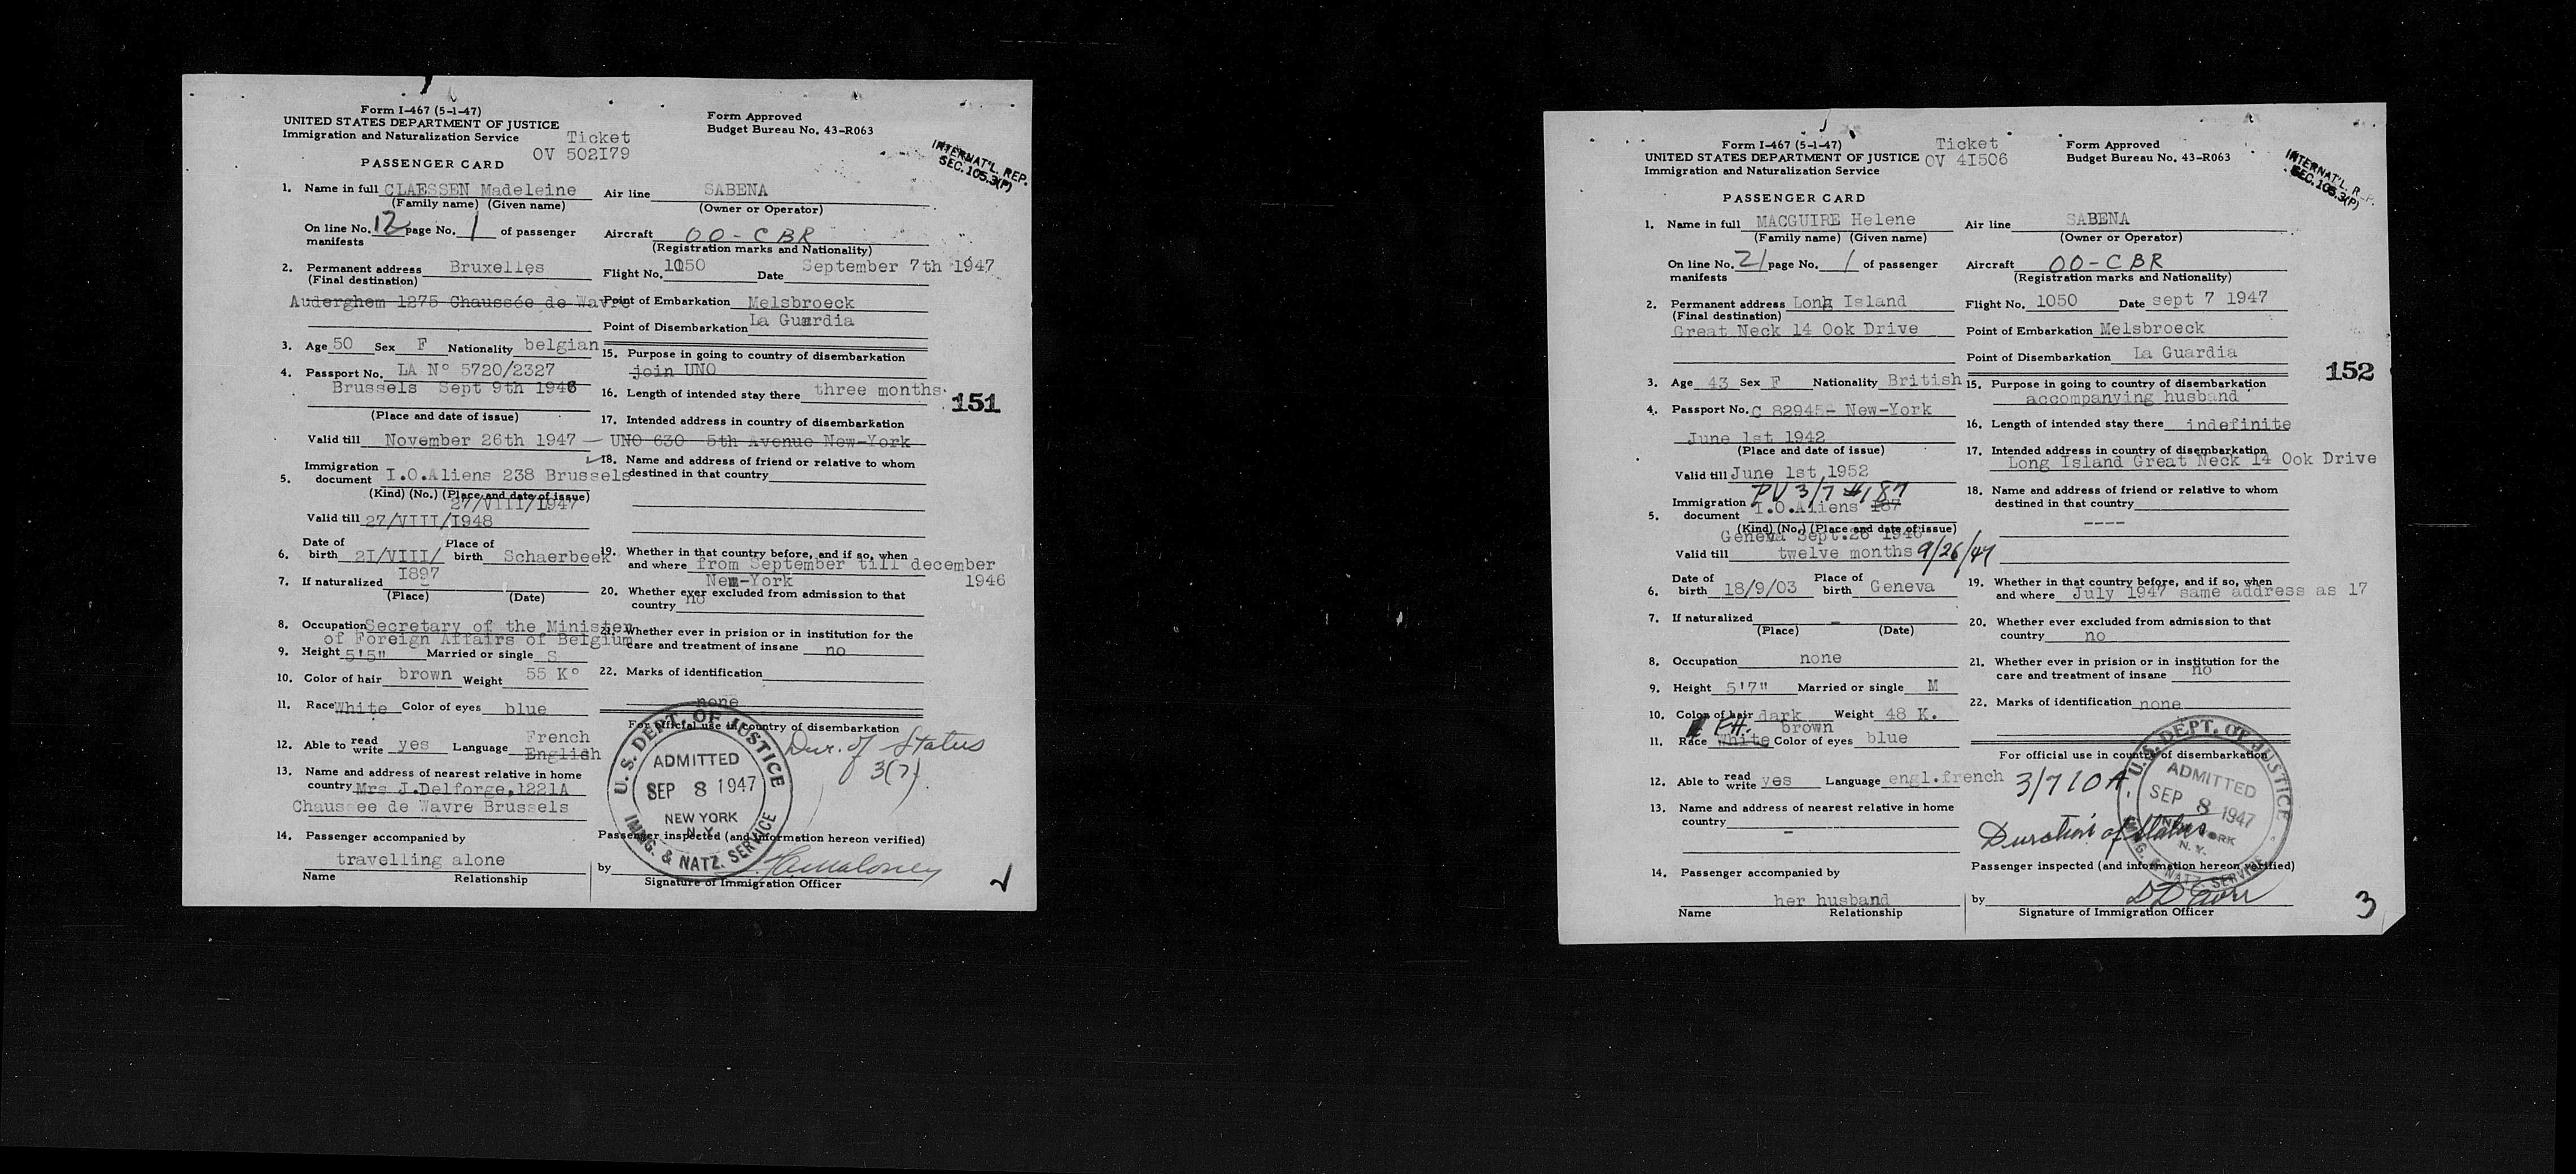 Form I-467 (5-1-47)
UNITED STATES DEPARTMENT OF JUSTICE
Immigration and Naturalization Service
Ticket
OV 502I79
Form Approved
Budget Bureau No. 43-R063
INTERNAT'L. REP.
SEC. 105.3(P)
PASSENGER CARD
1. Name in full CLAESSEN Madeleine
(Family name) (Given name)
On line No. 12 page No. 1 of passenger
manifests
2. Permanent address Bruxelles
(Final destination)
Auderghem 1275 Chaussée de Wavre
3. Age 50 Sex F Nationality belgian
4. Passport No. LA N° 5720/2327
Brussels Sept 9th 1946
(Place and date of issue)
Valid till November 26th 1947
5. Immigration document I.O.Aliens 238 Brussels
(Kind) (No.) (Place and date of issue)
27/VIII/I947
Valid till 27/VIII/I948
6. Date of birth 2I/VIII/ Place of birth Schaerbeek
I897
7. If naturalized
(Place) (Date)
8. Occupation Secretary of the Minister
of Foreign Affairs of Belgium
9. Height 5'5" Married or single S
10. Color of hair brown Weight 55 K°
11. Race White Color of eyes blue
12. Able to read write yes Language French
English
13. Name and address of nearest relative in home
country Mrs J.Delforge,1221A
Chaussee de Wavre Brussels
14. Passenger accompanied by
travelling alone
Name Relationship
Air line SABENA
(Owner or Operator)
Aircraft OO-CBR
(Registration marks and Nationality)
Flight No. 1050 Date September 7th 1947
Point of Embarkation Melsbroeck
Point of Disembarkation La Guardia
15. Purpose in going to country of disembarkation
join UNO
16. Length of intended stay there three months
151
17. Intended address in country of disembarkation
UNO 630 5th Avenue New-York
18. Name and address of friend or relative to whom
destined in that country
19. Whether in that country before, and if so, when
and where from September till december
New-York 1946
20. Whether ever excluded from admission to that
country no
21. Whether ever in prision or in institution for the
care and treatment of insane no
22. Marks of identification
none
For official use in country of disembarkation
U. S. DEPT. OF JUSTICE
ADMITTED
SEP 8 1947
NEW YORK
N. Y.
IMMG. & NATZ. SERVICE
Dur. of Status
3(7)
Passenger inspected (and information hereon verified)
by
Signature of Immigration Officer
Form I-467 (5-1-47)
UNITED STATES DEPARTMENT OF JUSTICE
Immigration and Naturalization Service
Ticket
OV 4I506
Form Approved
Budget Bureau No. 43-R063
INTERNAT'L. REP.
SEC. 105.3(P)
PASSENGER CARD
1. Name in full MACGUIRE Helene
(Family name) (Given name)
On line No. 21 page No. 1 of passenger
manifests
2. Permanent address Long Island
(Final destination)
Great Neck 14 Ook Drive
3. Age 43 Sex F Nationality British
4. Passport No. C 82945- New-York
June 1st 1942
(Place and date of issue)
Valid till June 1st 1952
PV 3/7 #187
5. Immigration document I.O.Aliens 187
(Kind) (No.) (Place and date of issue)
Geneva Sept.26 1946
Valid till twelve months 9/26/47
6. Date of birth 18/9/03 Place of birth Geneva
7. If naturalized -
(Place) (Date)
8. Occupation none
9. Height 5'7" Married or single M
10. Color of hair dark brown Weight 48 K.
11. Race White Color of eyes blue
12. Able to read write yes Language engl.french
13. Name and address of nearest relative in home
country -
14. Passenger accompanied by
her husband
Name Relationship
Air line SABENA
(Owner or Operator)
Aircraft OO-CBR
(Registration marks and Nationality)
Flight No. 1050 Date sept 7 1947
Point of Embarkation Melsbroeck
Point of Disembarkation La Guardia
152
15. Purpose in going to country of disembarkation
accompanying husband
16. Length of intended stay there indefinite
17. Intended address in country of disembarkation
Long Island Great Neck 14 Ook Drive
18. Name and address of friend or relative to whom
destined in that country
----
19. Whether in that country before, and if so, when
and where July 1947 same address as 17
20. Whether ever excluded from admission to that
country no
21. Whether ever in prision or in institution for the
care and treatment of insane no
22. Marks of identification none
For official use in country of disembarkation
U. S. DEPT. OF JUSTICE
ADMITTED
SEP 8 1947
NEW YORK
N. Y.
IMMG. & NATZ. SERVICE
3/7 IOA
Duration of Status
Passenger inspected (and information hereon verified)
by
Signature of Immigration Officer
3